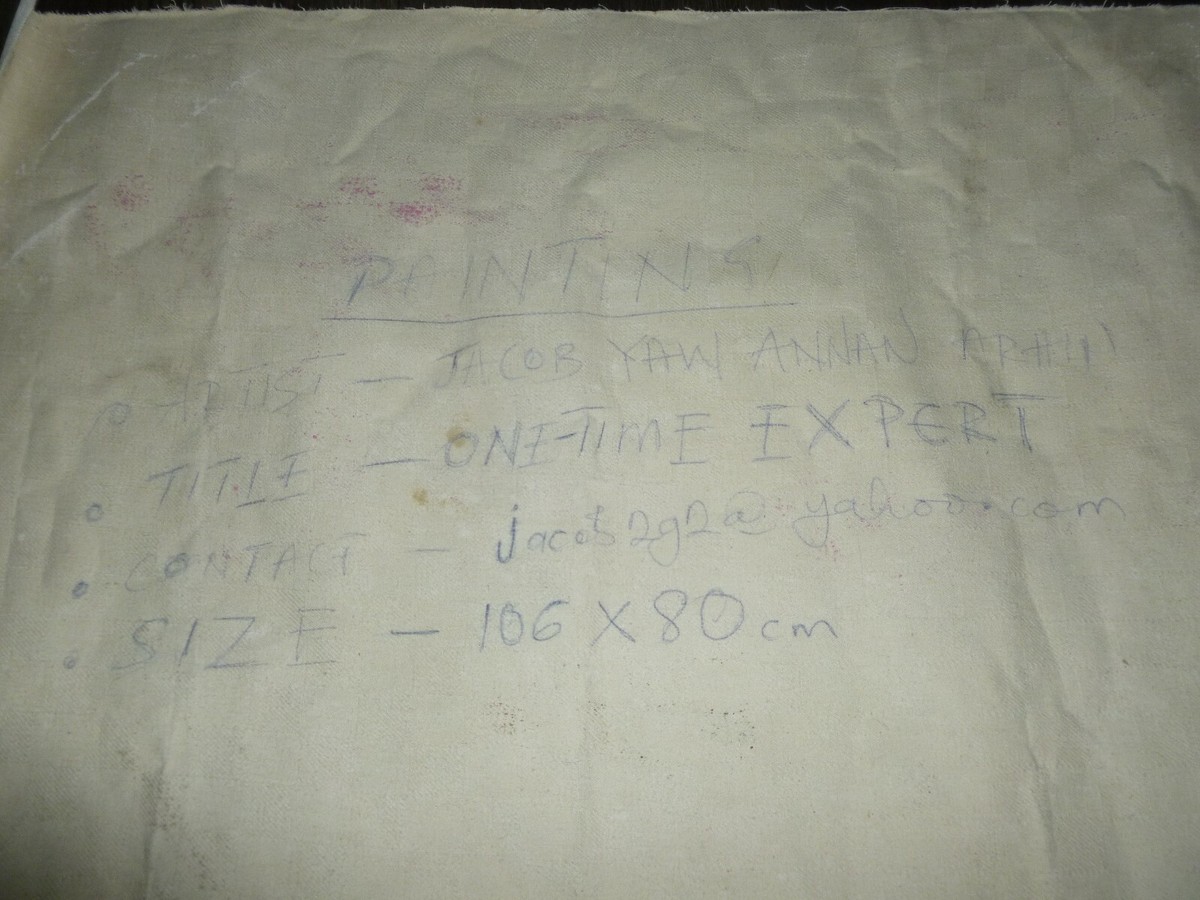 PAINTING
• ARTIST — JACOB YAW ANNAN
• TITLE — ONE-TIME EXPERT
• CONTACT — @yahoo.com
• SIZE — 106 X 80 cm